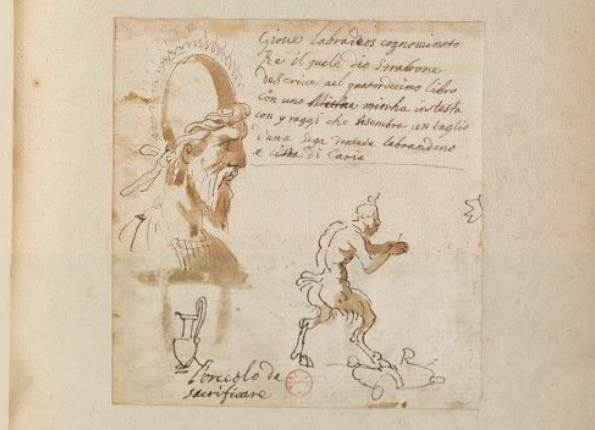 Gioue labradeos cognominato
Re il quale dio Strabone
descriue nel quatordecimo libro
con una mitrha in testa
con raggi che sembra un taglio
d'una sega dentata labrandino
e citta di Caria
R
Vorceolo da
sacrificare